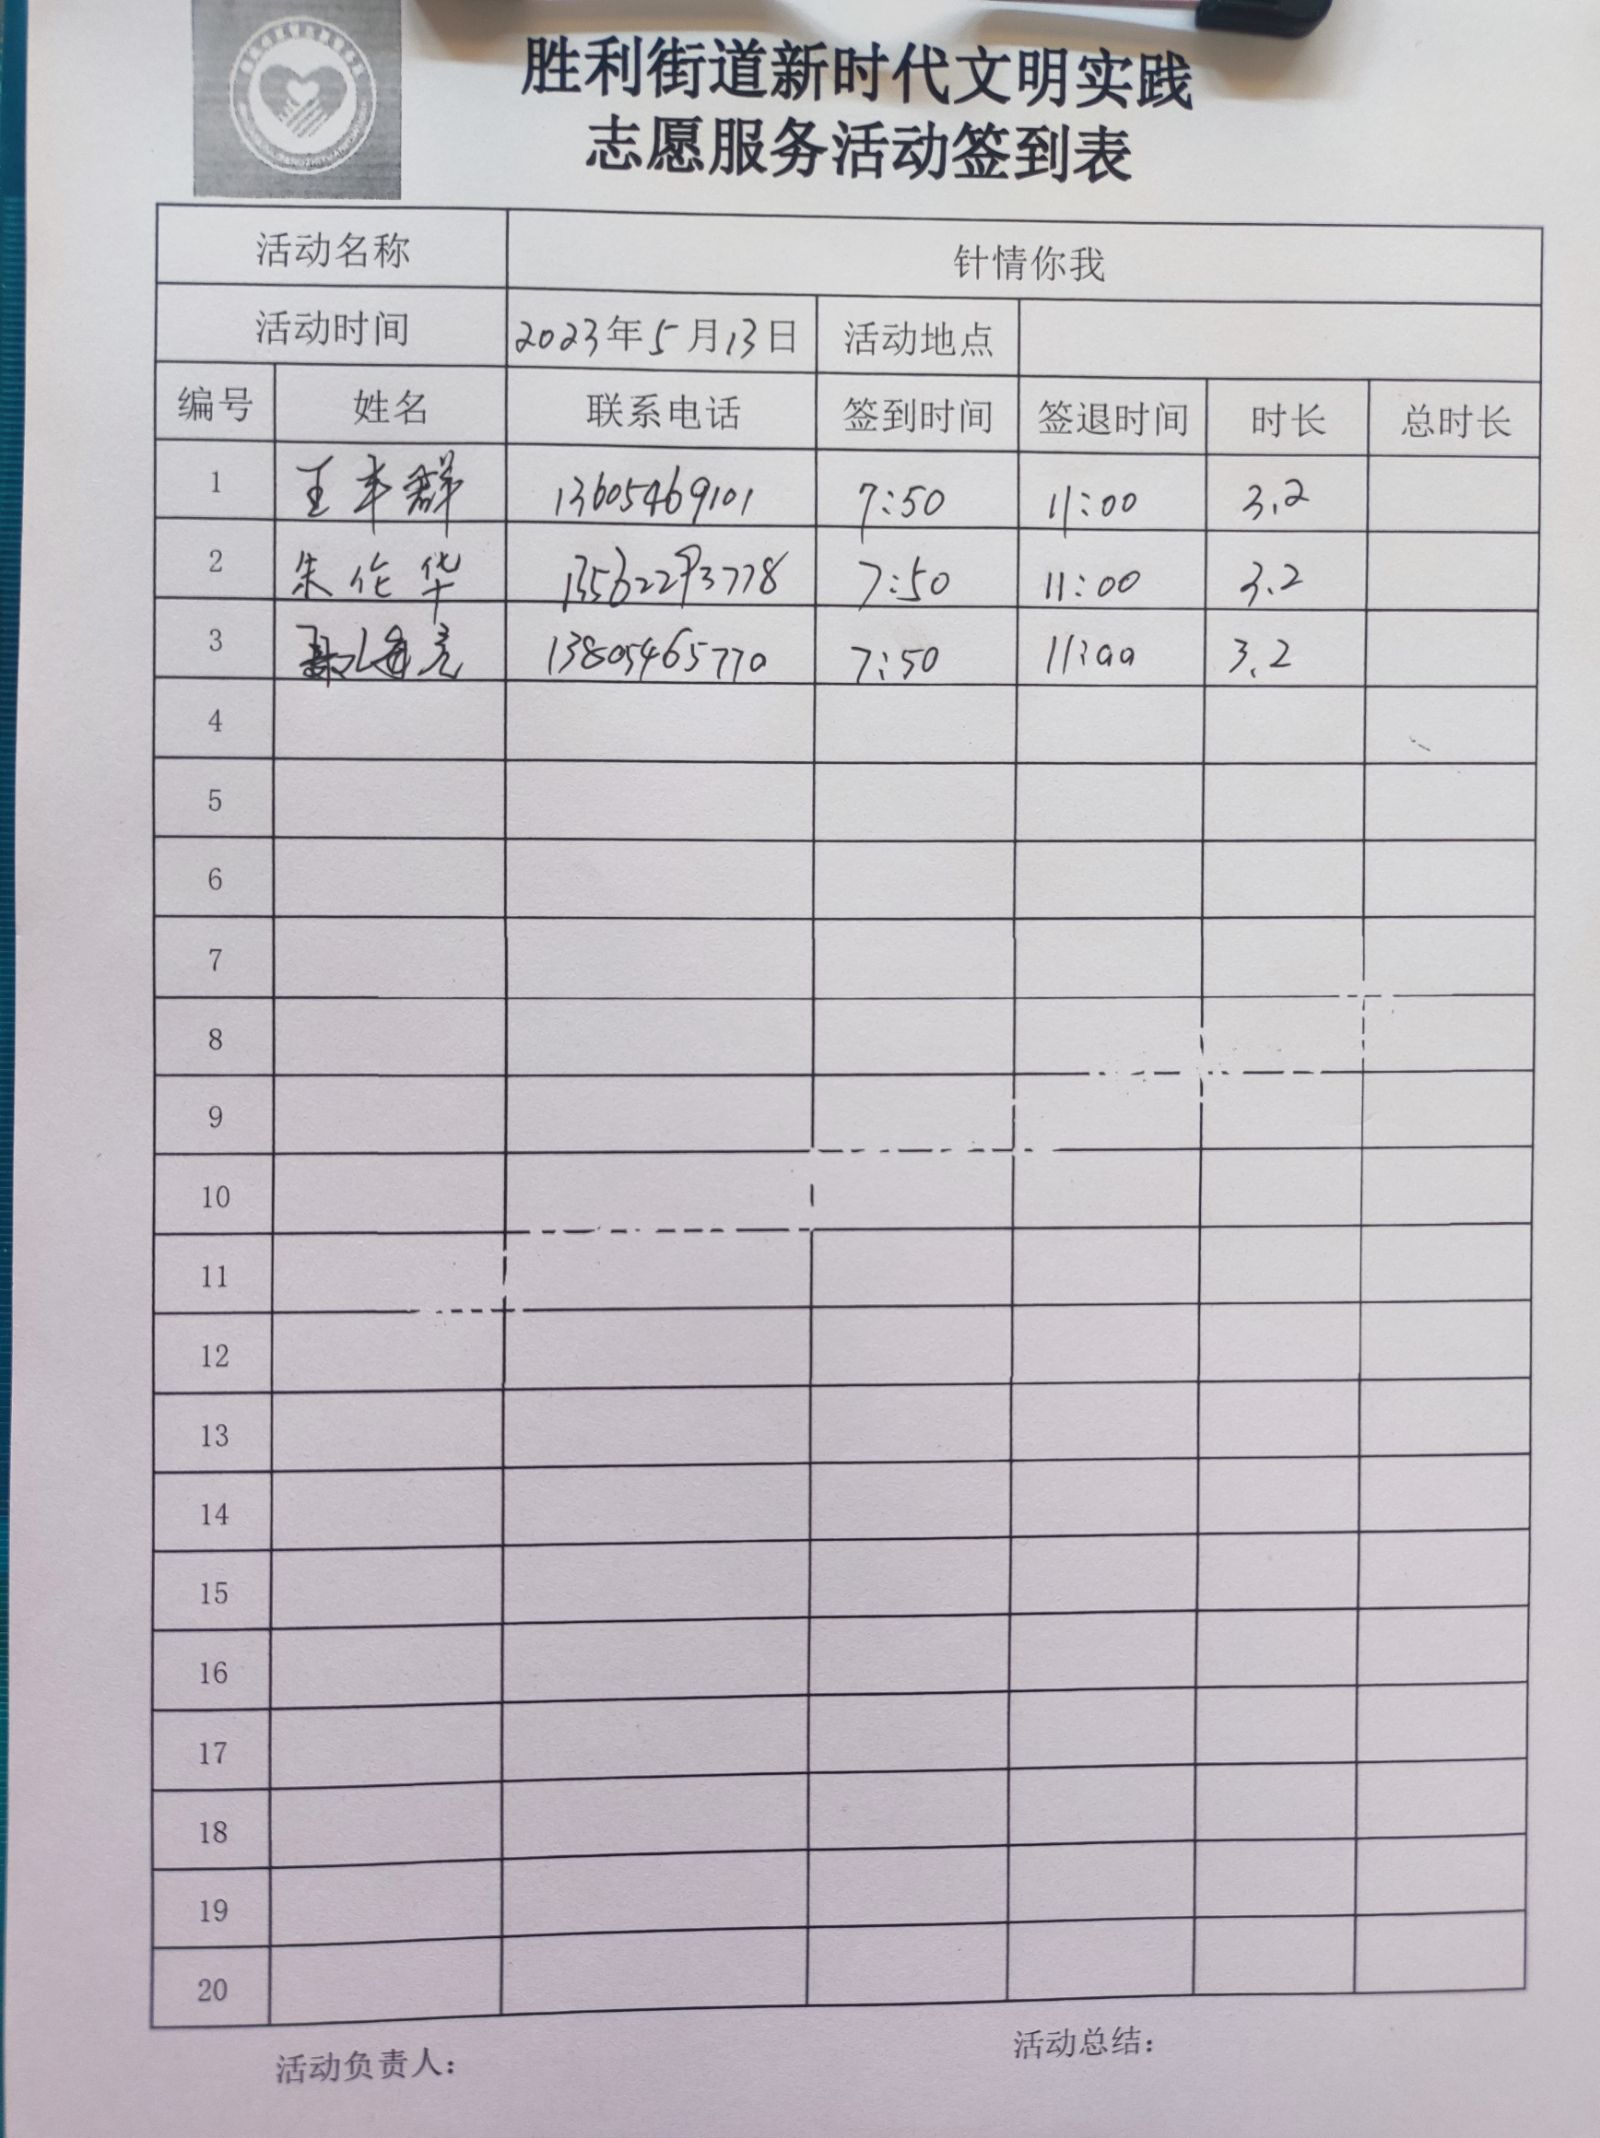 胜利街道新时代文明实践
志愿服务活动签到表
活动名称 针情你我
活动时间 2023年5月13日 活动地点
编号 姓名 联系电话 签到时间 签退时间 时长 总时长
1 王丰群 13605469101 7:50 11:00 3.2
2 朱伦华 13562293778 7:50 11:00 3.2
3 13805465770 7:50 11:00 3.2
4
5
6
7
8
9
10
11
12
13
14
15
16
17
18
19
20
活动负责人: 活动总结: